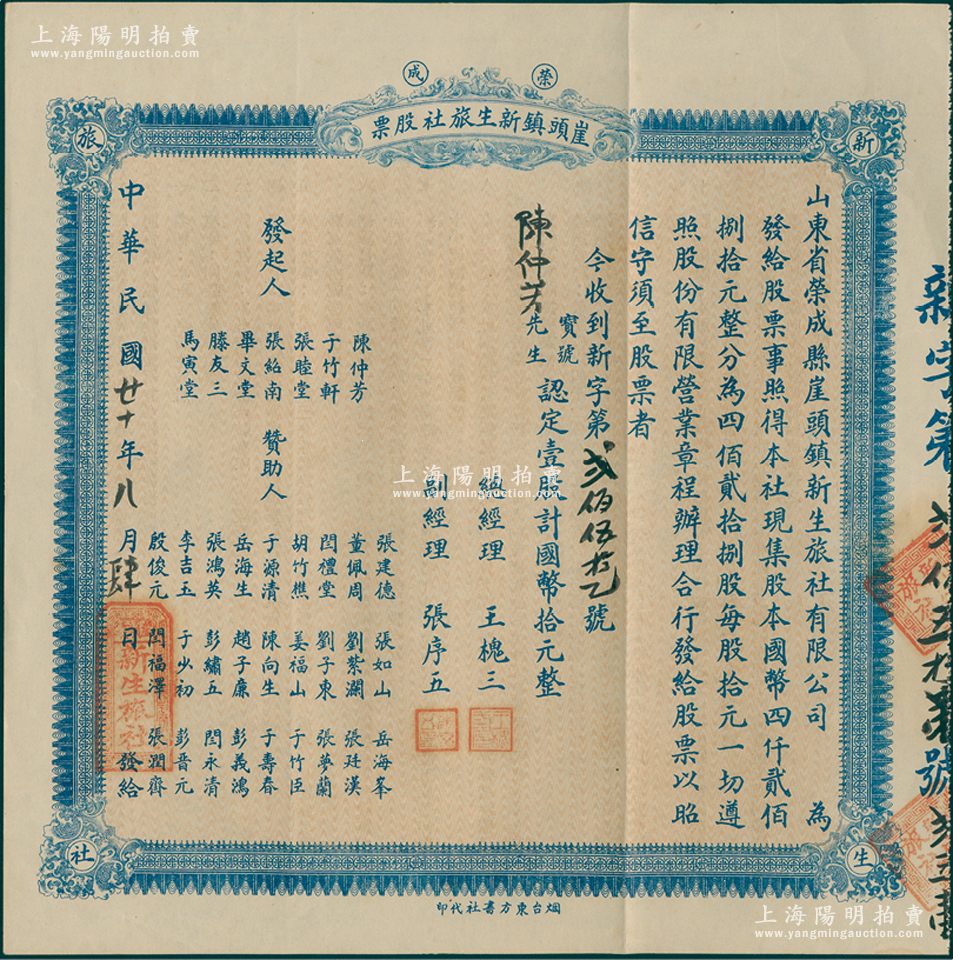 上海陽明拍賣
www.yangmingauction.com
榮成
崖頭鎮新生旅社股票
新
生
旅
社
山東省榮成縣崖頭鎮新生旅社有限公司 為
發給股票事照得本社現集股本國幣四仟貳佰
捌拾元整分為四佰貳拾捌股每股拾元一切遵
照股份有限營業章程辦理合行發給股票以昭
信守須至股票者
今收到新字第貳佰伍拾號
陳仲芳 寶號 先生 認定壹股計國幣拾元整
總經理 王槐三
副經理 張序五
發起人
陳仲芳
于竹軒
張睦堂
張紹南
畢文堂
滕友三
馬寅堂
贊助人
張建德 張如山 岳海峯
董佩周 劉紫瀾 張廷漢
閆禮堂 劉子東 張夢蘭
胡竹樵 姜福山 于竹臣
于源清 陳向生 于壽春
岳海生 趙子廉 彭義鴻
張鴻英 彭繡五 閆永清
李吉玉 于少初 彭晋元
殷俊元 閆福澤 張潤齊
中華民國廿十年八月肆日發給
新生旅社
新字第
號
烟台東方書社代印
上海陽明拍賣
www.yangmingauction.com
上海陽明拍賣
www.yangmingauction.com